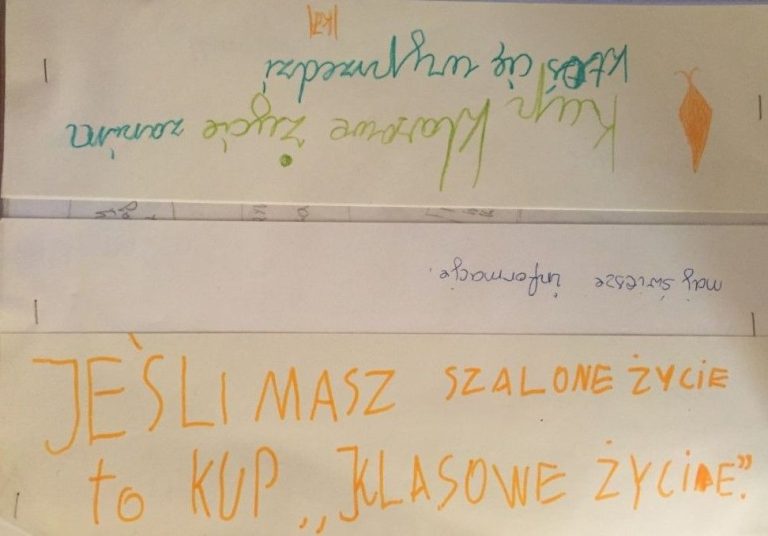 Kup klasowe życie zanim
ktoś cię wyprzedzi
maj świesze informacje.
JEŚLI MASZ SZALONE ŻYCIE
to KUP „KLASOWE ŻYCIE”.